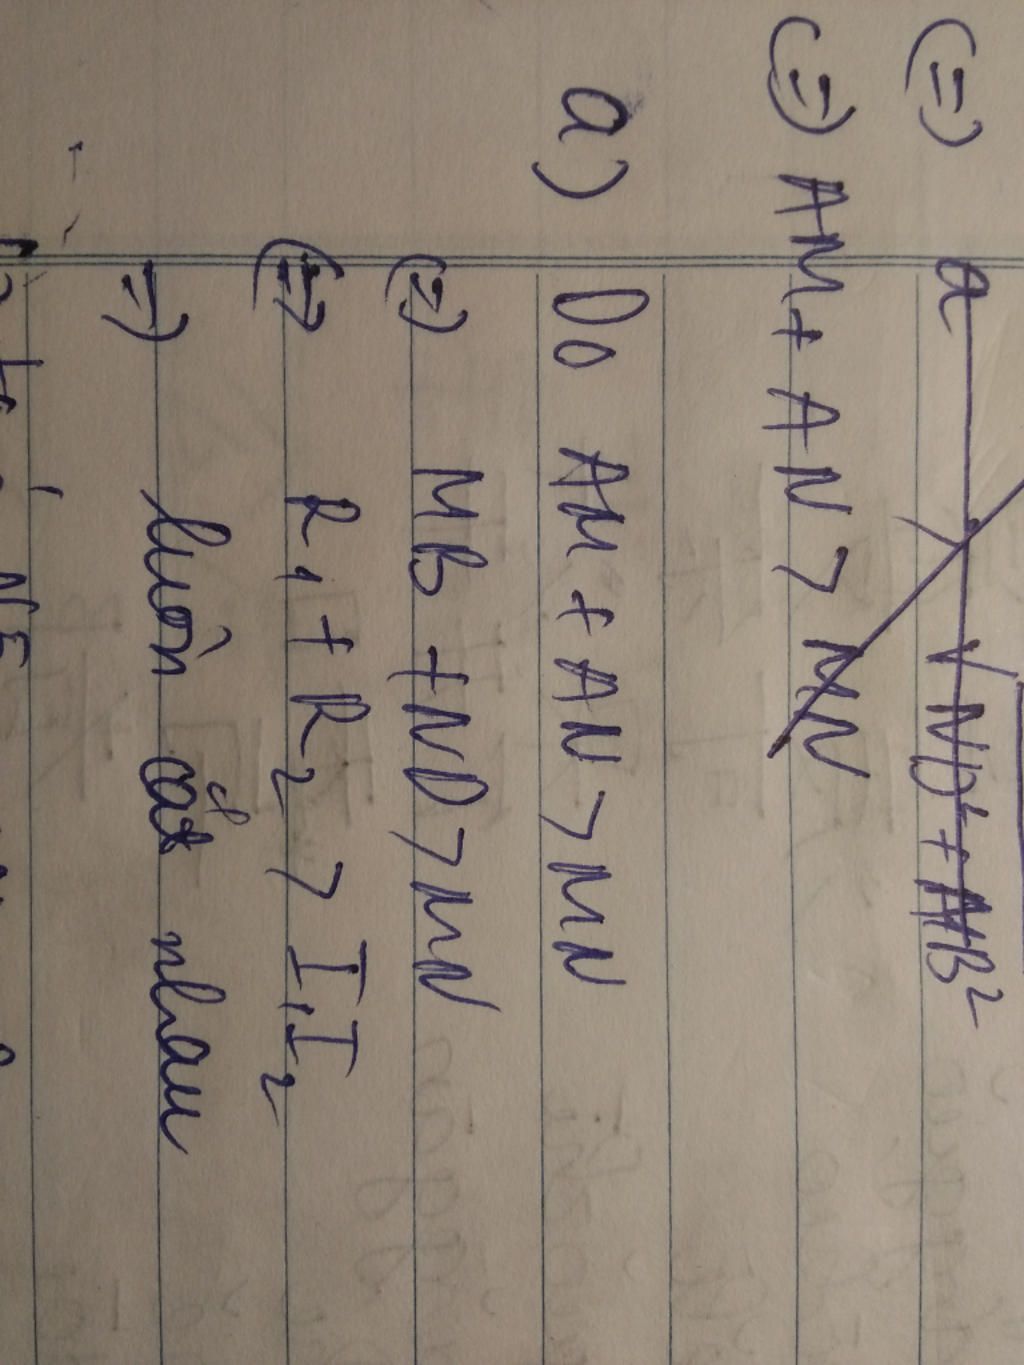 (=) a √ND²+MB²
(=) AM + AN > MN
a) Do AM + AN > MN
(=) MB + ND > MN
(=) R₁ + R₂ > I₁I₂
=) luôn cắt nhau